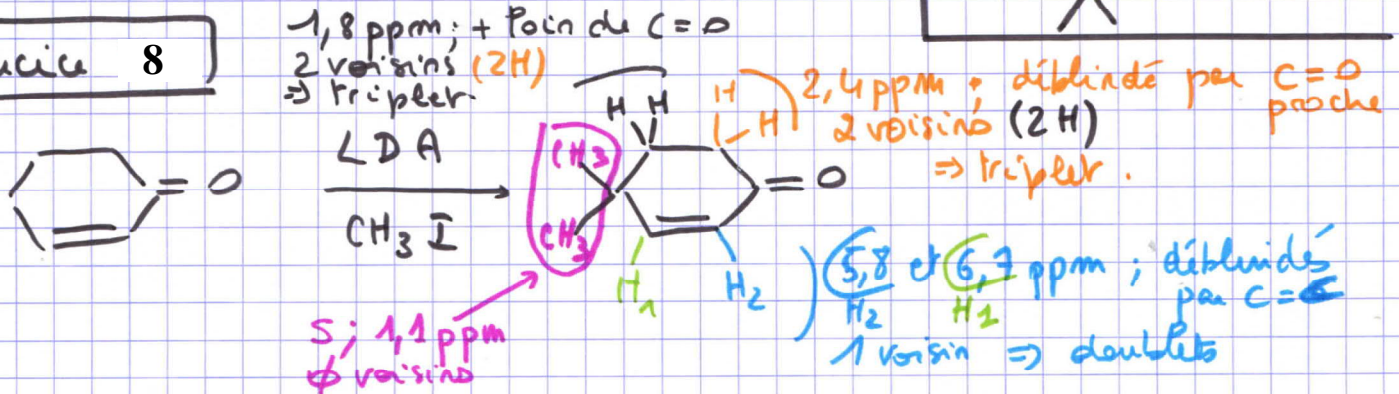 ucice 8
1,8 ppm ; + loin de C=O
2 voisins (2H)
⇒ triplet.
LDA
CH3 I
O
H H
H
H
CH3
CH3
O
H1
H2
2,4 ppm ; déblindé par C=O
proche
2 voisins (2H)
⇒ triplet.
5,8 et 6,7 ppm ; déblindés
H2 H1 par C=C
1 voisin ⇒ doublets
S ; 1,1 ppm
ϕ voisins